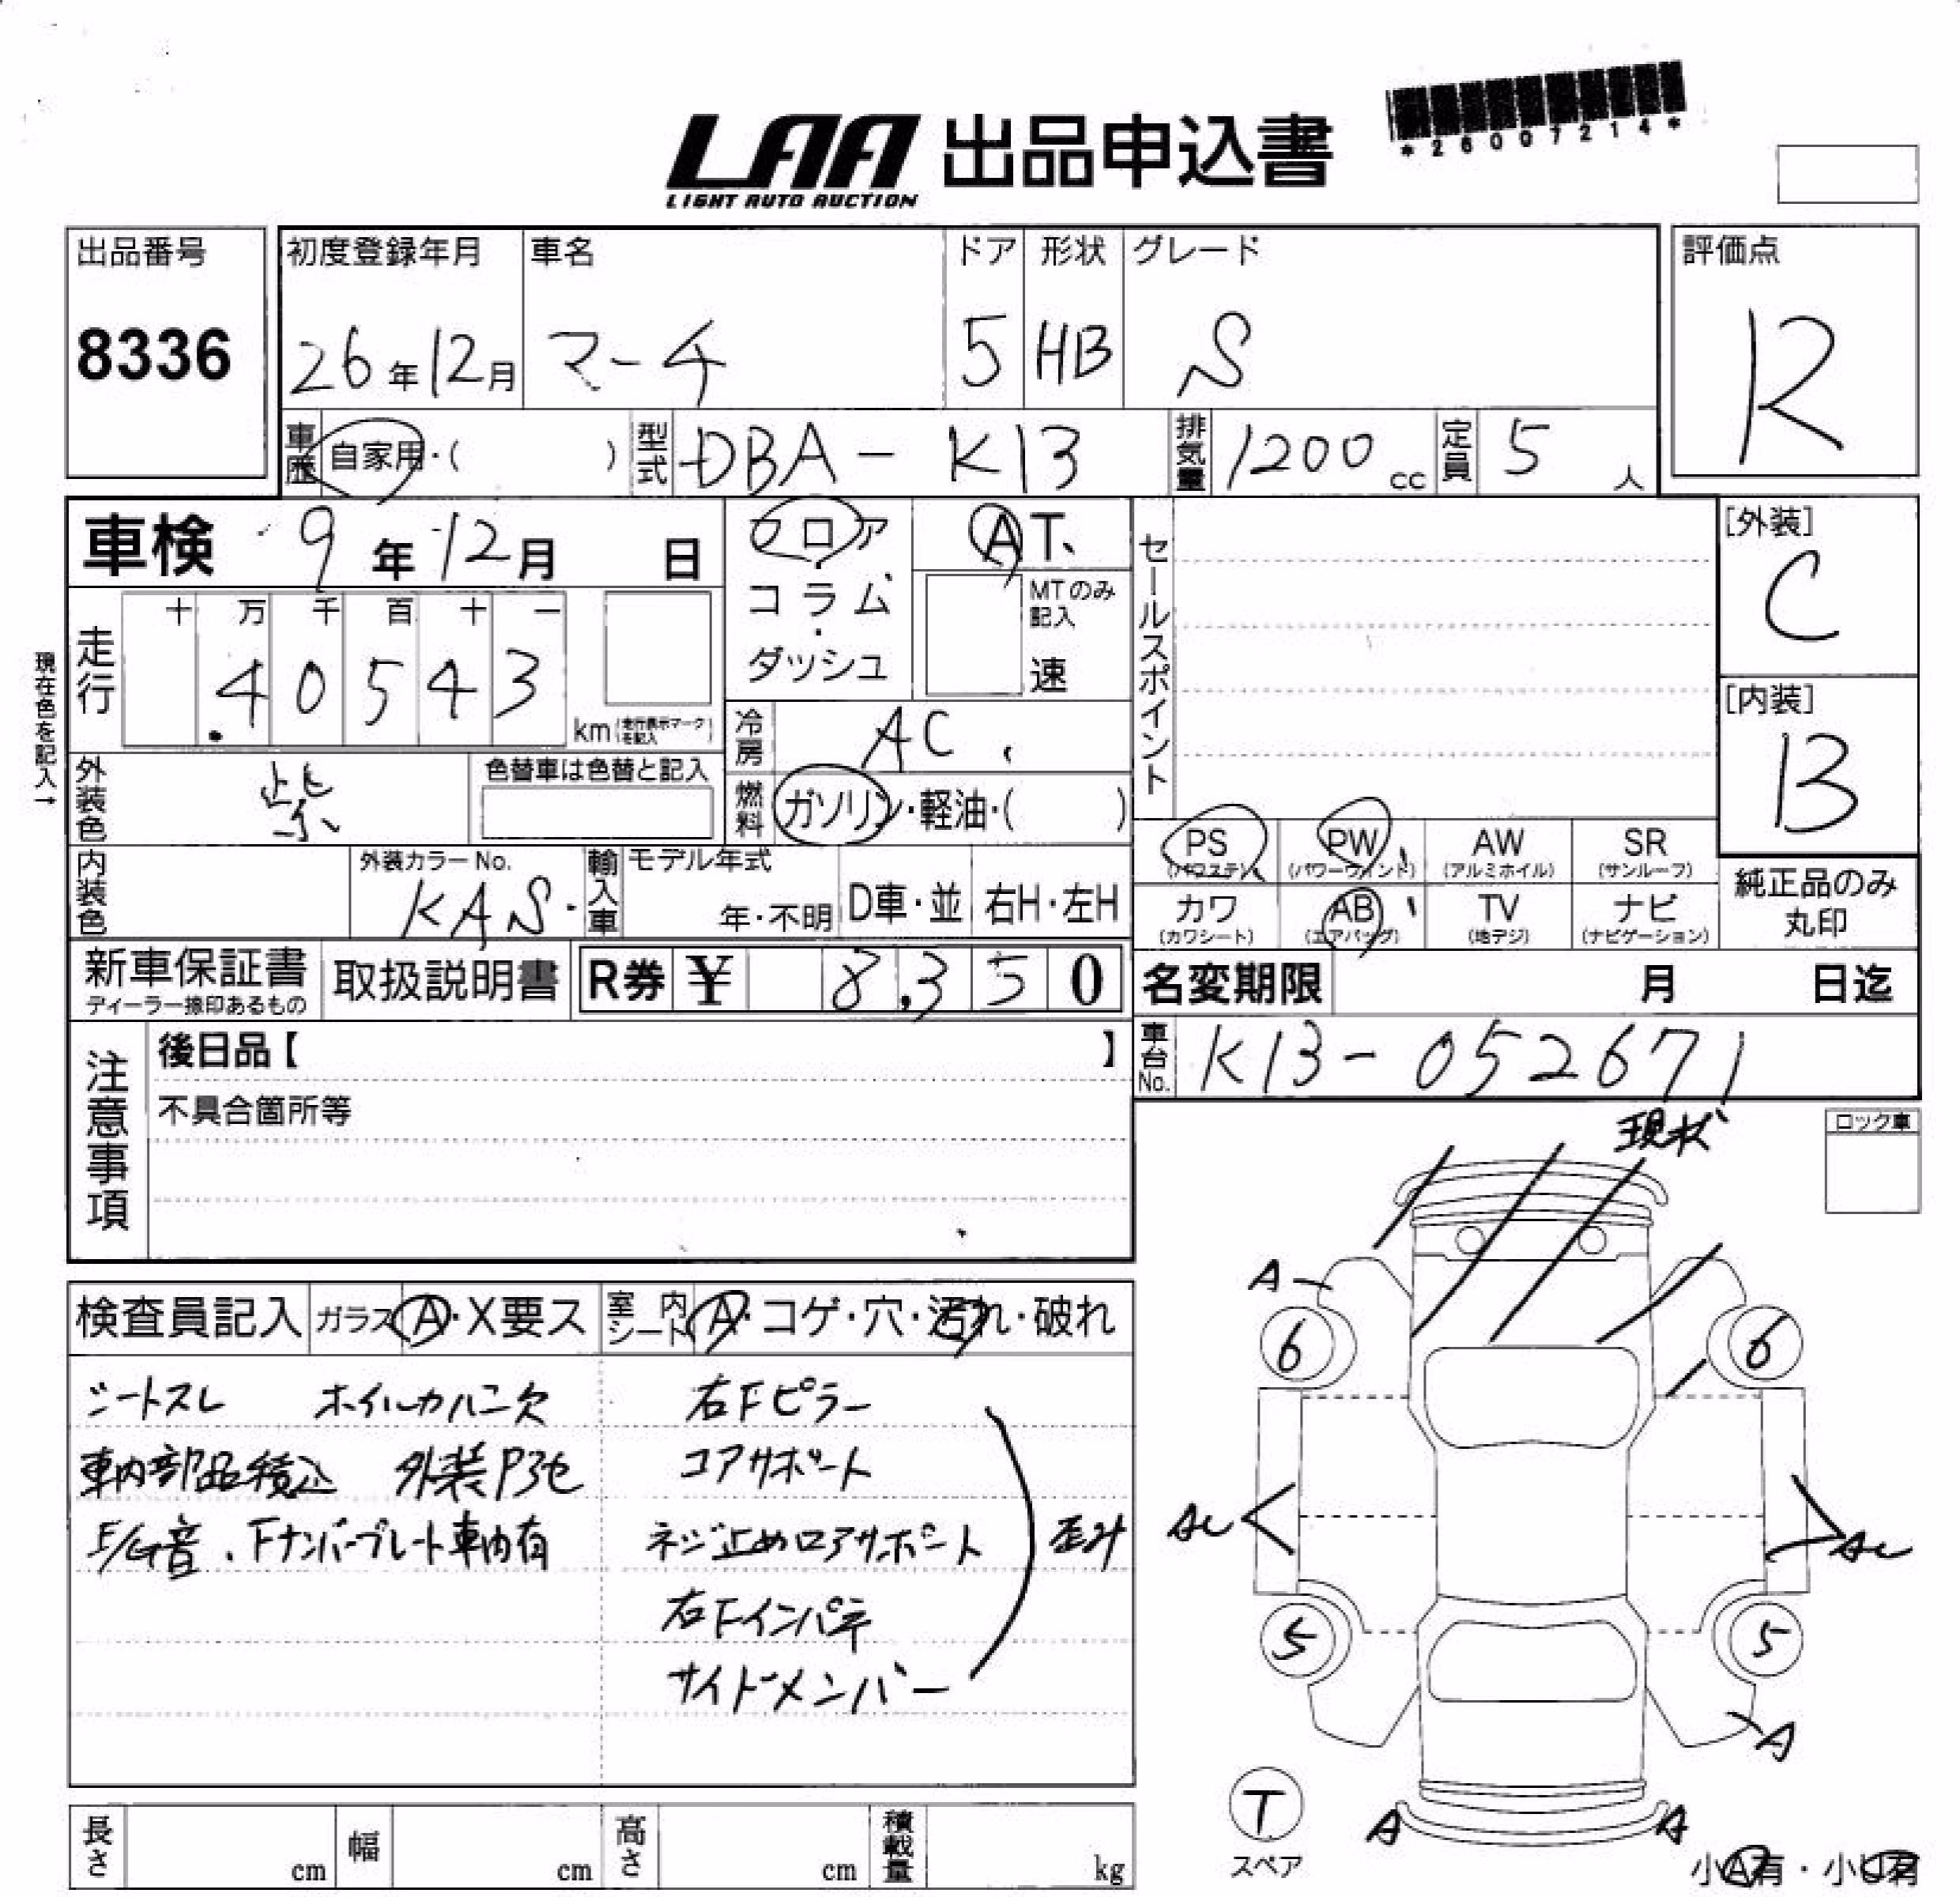 LAA 出品申込書
LIGHT AUTO AUCTION
*26007214*
出品番号 初度登録年月 車名 ドア 形状 グレード 評価点
8336 26年12月 マーチ 5 HB S R
車歴 自家用・( ) 型式 DBA-K13 排気量 1200cc 定員 5人
車検 9年12月 日 フロア AT、 セールスポイント [外装]
コラム・ MTのみ記入 C
ダッシュ 速
現在色を記入→
走行 十 万 千 百 十 一
40543 km (走行表示マークを記入)
冷房 AC [内装]
B
外装色 紫 色替車は色替と記入 燃料 ガソリン・軽油・( )
PS PW AW SR
(パワステ) (パワーウインド) (アルミホイル) (サンルーフ)
内装色 外装カラーNo. KAS 輸入車 モデル年式 年・不明 D車・並 右H・左H
カワ AB TV ナビ 純正品のみ
(カワシート) (エアバッグ) (地デジ) (ナビゲーション) 丸印
新車保証書 取扱説明書 R券 ¥ 8,350 名変期限 月 日迄
ディーラー捺印あるもの
注意事項 後日品【 】 車台No. K13-052671
不具合箇所等
現状 ロック車
検査員記入 ガラス A・X要ス 室内シート A・コゲ・穴・汚れ・破れ
シートスレ ホイルカバー欠 右Fピラー
車内部品積込 外装P3セ コアサポート
E/G音、Fナンバープレート車内有 ネジ止めロアサポート 歪み
右Fインパネ
サイドメンバー
A
6 6
5 5
A
T A A
スペア
小A有・小U有
長さ cm 幅 cm 高さ cm 積載量 kg